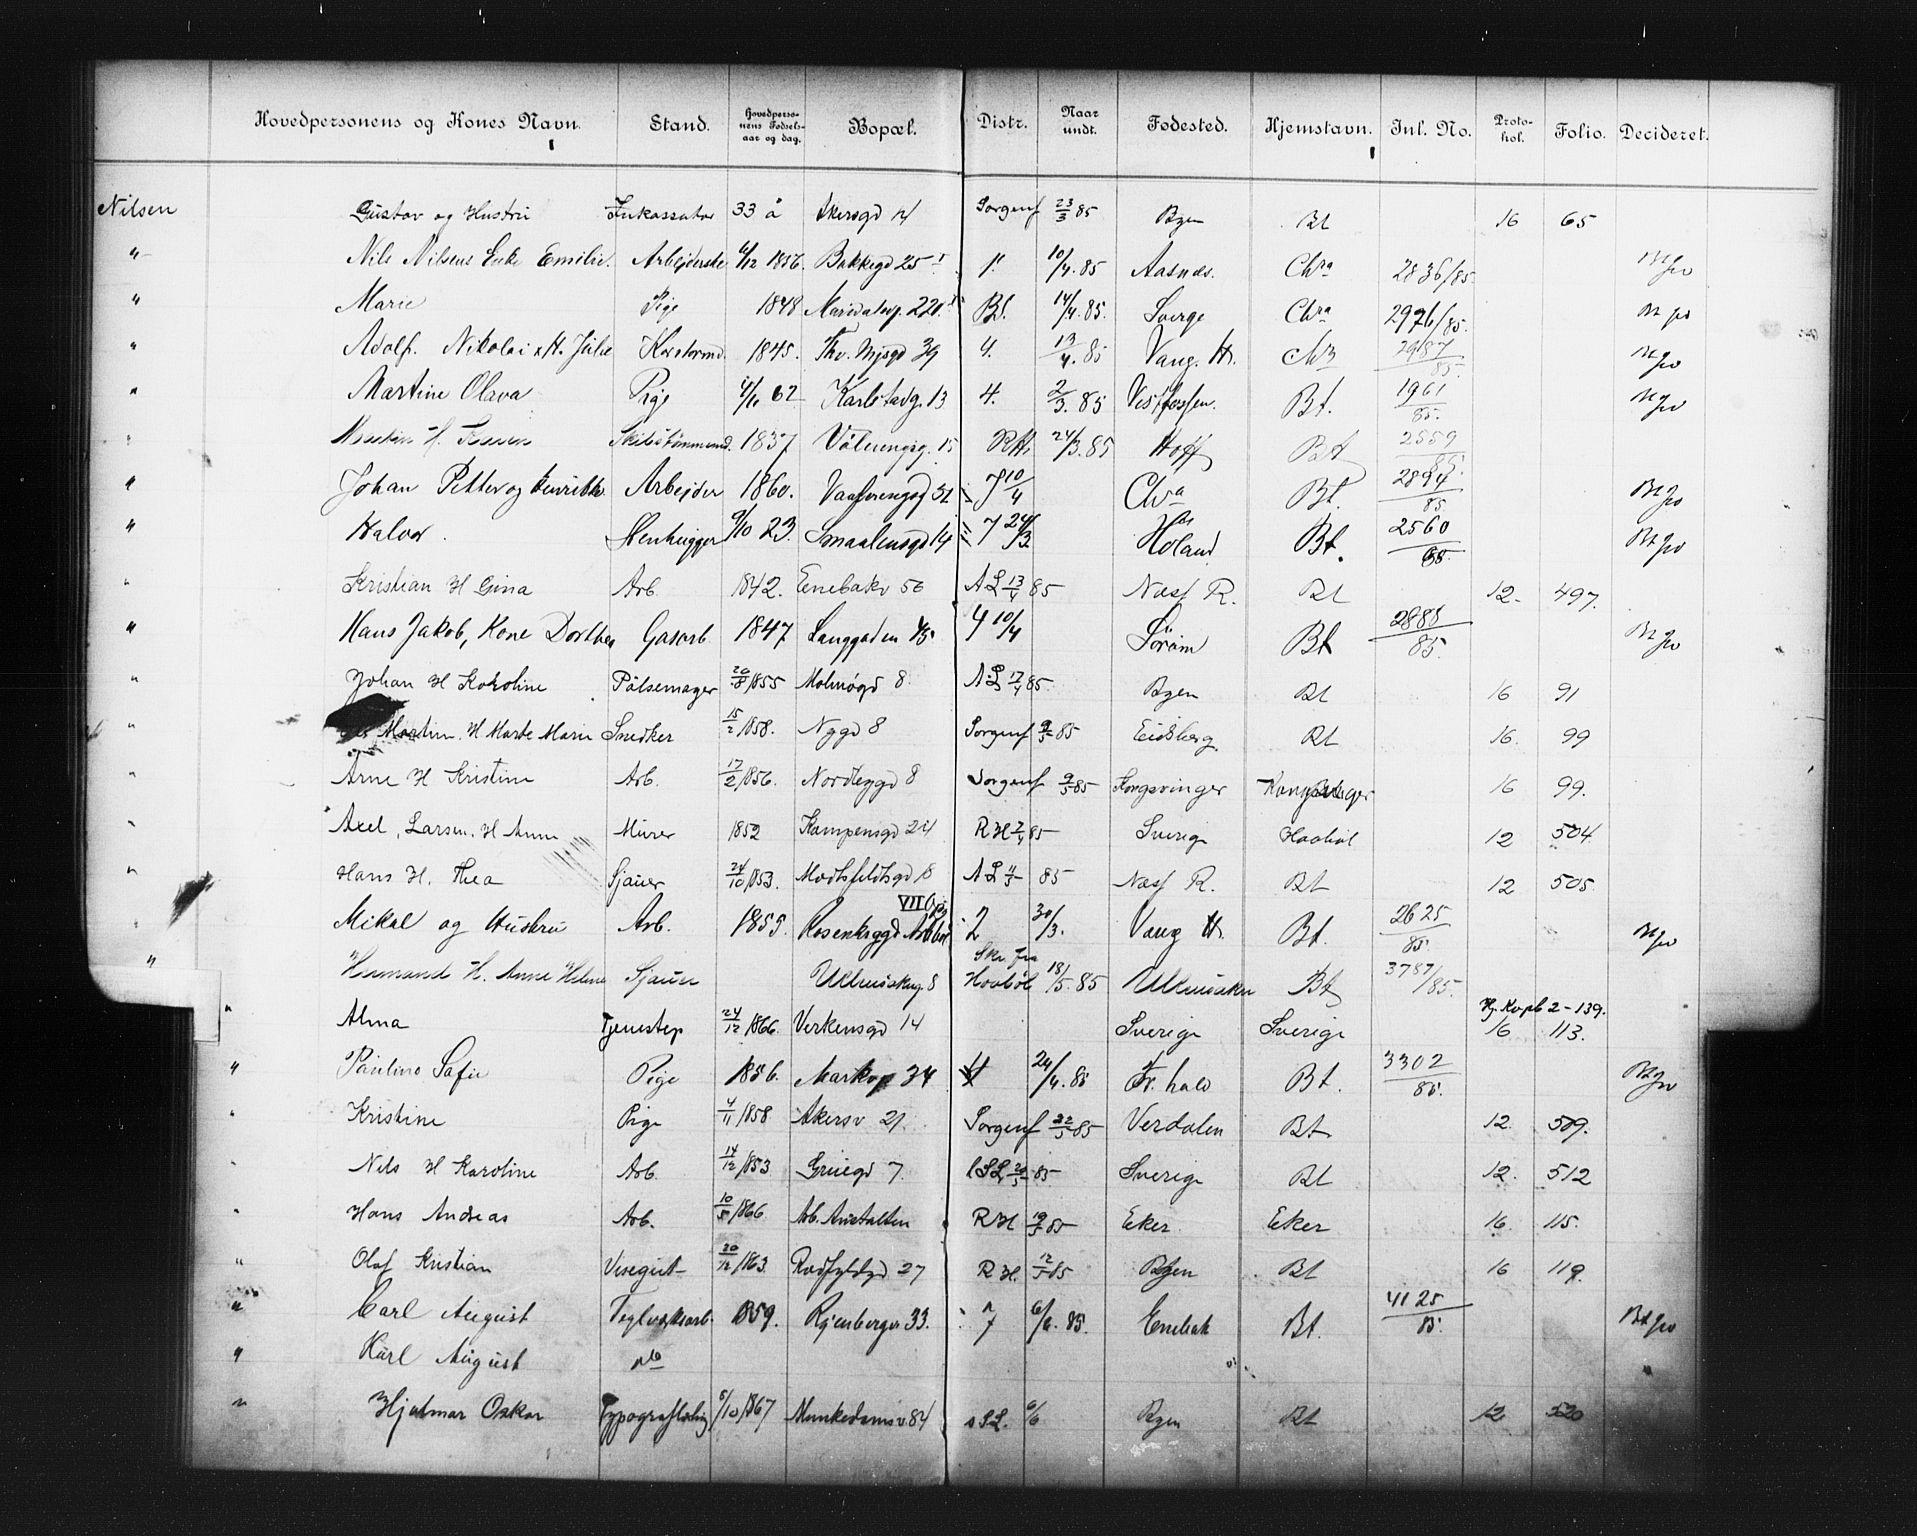 Hovedpersonens og Kones Navn. Stand. Hovedpersonens Fødselsaar og dag. Bopæl. Distr. Naar undt. Fødested. Hjemstavn. Inl. No. Protokol. Folio. Decideret.
Nilsen Gustav og Hustru Inkassator 33 å Akersgd 14 Sorgenf 23/3 85 Byen Bt 16 65
" Nils Nilsens Enke Emilie. Arbejderske 6/12 1856. Bakkegd 25 I 1. 10/4. 85 Aasnes. Chra 2836/85.
" Marie Pige 1848 Maridalsv. 220. Bt. 14/4. 85. Sverge Chra 2976/85.
" Adolf. Nikolai & H. Julie 1845. Thv. Mejsgd 39 4. 13/4. 85 Vang. H. 85.
" Martine Olava Pige 4/11 62 Karlstadg. 13 4. 2/3. 85 Vestfossen. Bt. 1961/85.
1837 Vålerengsg. 15 RH. 24/3. 85 Hoff 2559/85.
" Johan Petter og Henrikke Arbejder 1860. Vaalerengsgd 51 7 10/4 Chra Bt. 2894/85
" Halvor. Stenhugger 9/10 23. Smaalensgd 14 7 24/3 Höland Bt. 2560/85.
" Kristian H Gina Arb. 1842. Enebakv 56 AL 13/4 85 Næs R. Bt 12. 497.
" Hans Jakob, Kone Dorthea Gasarb. 1847 Langgaden 45. 4 10/4 Sörum Bt 2888/85.
" Johan H Karoline Pølsemager 20/8 1855 Malmøgd 8 AL 17/4 85. Byen Bt 16 91
" Martin. H Marte Marie Snedker 15/2 1858. Nygd 8 Sorgenf 9/5 85 Eidsberg Bt 16. 99
" Arne H Kristine Arb. 17/2 1856. Nordbygd 8 Sorgenf 9/5 85 Kongsvinger Kongsvinger 16 99.
" Axel, Larsen, H Anna Murer 1852 Kampensgd 24 RH 7/4 85 Sverige Haabøl 12 504.
" Hans H. Thea Sjauer 24/10 1853. Motzfeldtsgd 18 AL 4/5 85 Næs R. Bt 12 505.
Mikal og Hustru Arb. 1855. Rosenkrgd VII 2 30/3. Vang H. Bt. 2625/85.
" Hermand H. Anne Helene Sjauer Ullensakerg. 8 Skr. fra Hovbøl 18/5. 85 Ullensaker Bt 3787/85.
" Alma Tjenestep 24/12 1866. Verkensgd 14 Sverige Sverige Hj. Kopb 2-139. 16 113.
" Pauline Safie Pige 1856. Markv 34 24/4. 85 Fr. hald Bt. 3302/85.
" Kristine Pige 4/11 1858 Akersv 21 Sorgenf 22/5 85 Verdalen Bt 12. 509.
" Nils H Karoline Arb. 14/12 1853 Gruegd 7. 20/5 85 Sverige Bt 12. 512
" Hans Andreas Arb. 10/5 1866 Arb. Anstalten RH 19/5 85 Eker. Eker 16. 115.
" Olaf Kristian Visegut 20/12 1863. Rødfyldgd 27 RH. 12/5 85 Byen Bt 16 119.
" Carl August Teglverksarb. 1859. Ryenbergv 33. 7 6/6. 85. Enebak Bt. 4125/85.
" Karl August do
" Hjalmar Oskar Typograflærling 5/10 1867 Munkedamsv 84 sSL. 6/6 Byen Bt 12 520